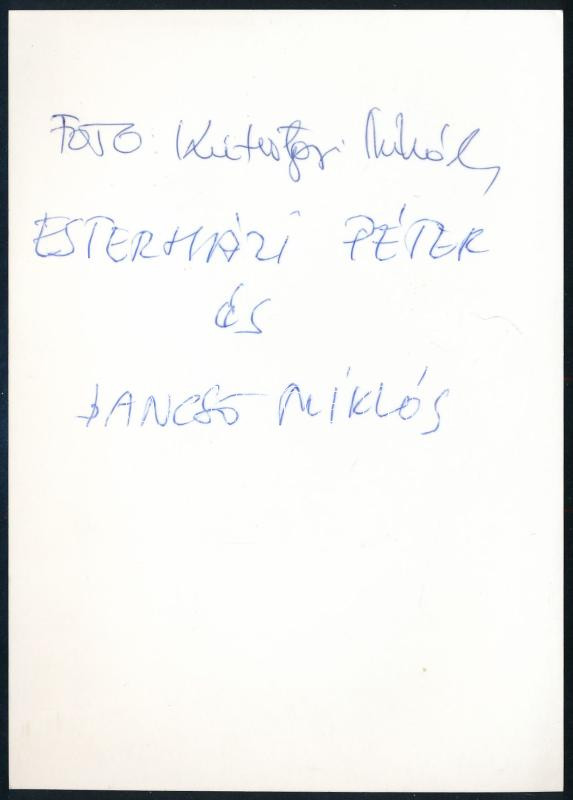 FOTO: Kútvölgyi Mihály
ESTERHÁZI PÉTER
és
JANCSÓ MIKLÓS